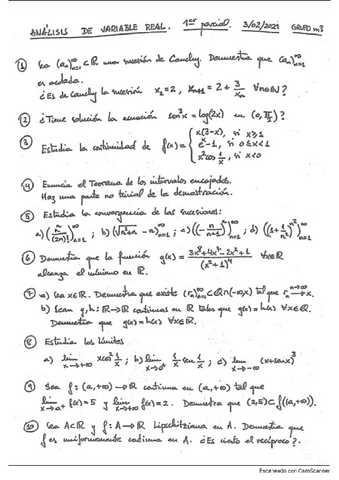 ANÁLISIS DE VARIABLE REAL. 1er parcial. 3/02/2021 GRUPO m3
1 Sea (a_n)_{n=1}^∞ ⊂ R una sucesión de Cauchy. Demuestra que (a_n)_{n=1}^∞
es acotada.
¿Es de Cauchy la sucesión x_1=2, x_{n+1} = 2 + 3/x_n ∀n∈N?
2 ¿Tiene solución la ecuación sen^3 x = log(2x) en (0, π/2)?
3 Estudia la continuidad de f(x) = { x(3-x), si x≥1
e^x-1, si 0≤x<1
x^2 cos 1/x, si x<0
4 Enuncia el Teorema de los intervalos encajados.
Haz una parte no trivial de la demostración.
5 Estudia la convergencia de las sucesiones:
a) (n^n/(2n)!)_{n=1}^∞; b) (√(n^2+1) - n)_{n=1}^∞; c) ; d) ((1+1/n^2)^{n^2})_{n=1}^∞
6 Demuestra que la función g(x) = (3x^8+4x^7-2x^2+1)/(x^2+1)^4 ∀x∈R
alcanza el mínimo en R.
7 a) Sea x∈R. Demuestra que existe (r_n)_{n=1}^∞ ⊂ Q∩(-∞,x) tal que r_n →^{n→∞} x.
b) Sean g,h: R→R continuas en R tales que g(x)=h(x) ∀x∈Q.
Demuestra que g(x)=h(x) ∀x∈R.
8 Estudia los límites
a) lim_{x→+∞} x cos^2 1/x; b) lim_{x→0+} 1/x sen 1/x; c) lim_{x→-∞} (x+sen x)^3
9 Sea f: (a,+∞) → R continua en (a,+∞) tal que
lim_{x→a+} f(x)=5 y lim_{x→+∞} f(x)=2. Demuestra que (2,5) ⊂ f((a,+∞)).
10 Sea A⊂R y f: A→R Lipschitziana en A. Demuestra que
f es uniformemente continua en A. ¿Es cierto el recíproco?
Escaneado con CamScanner